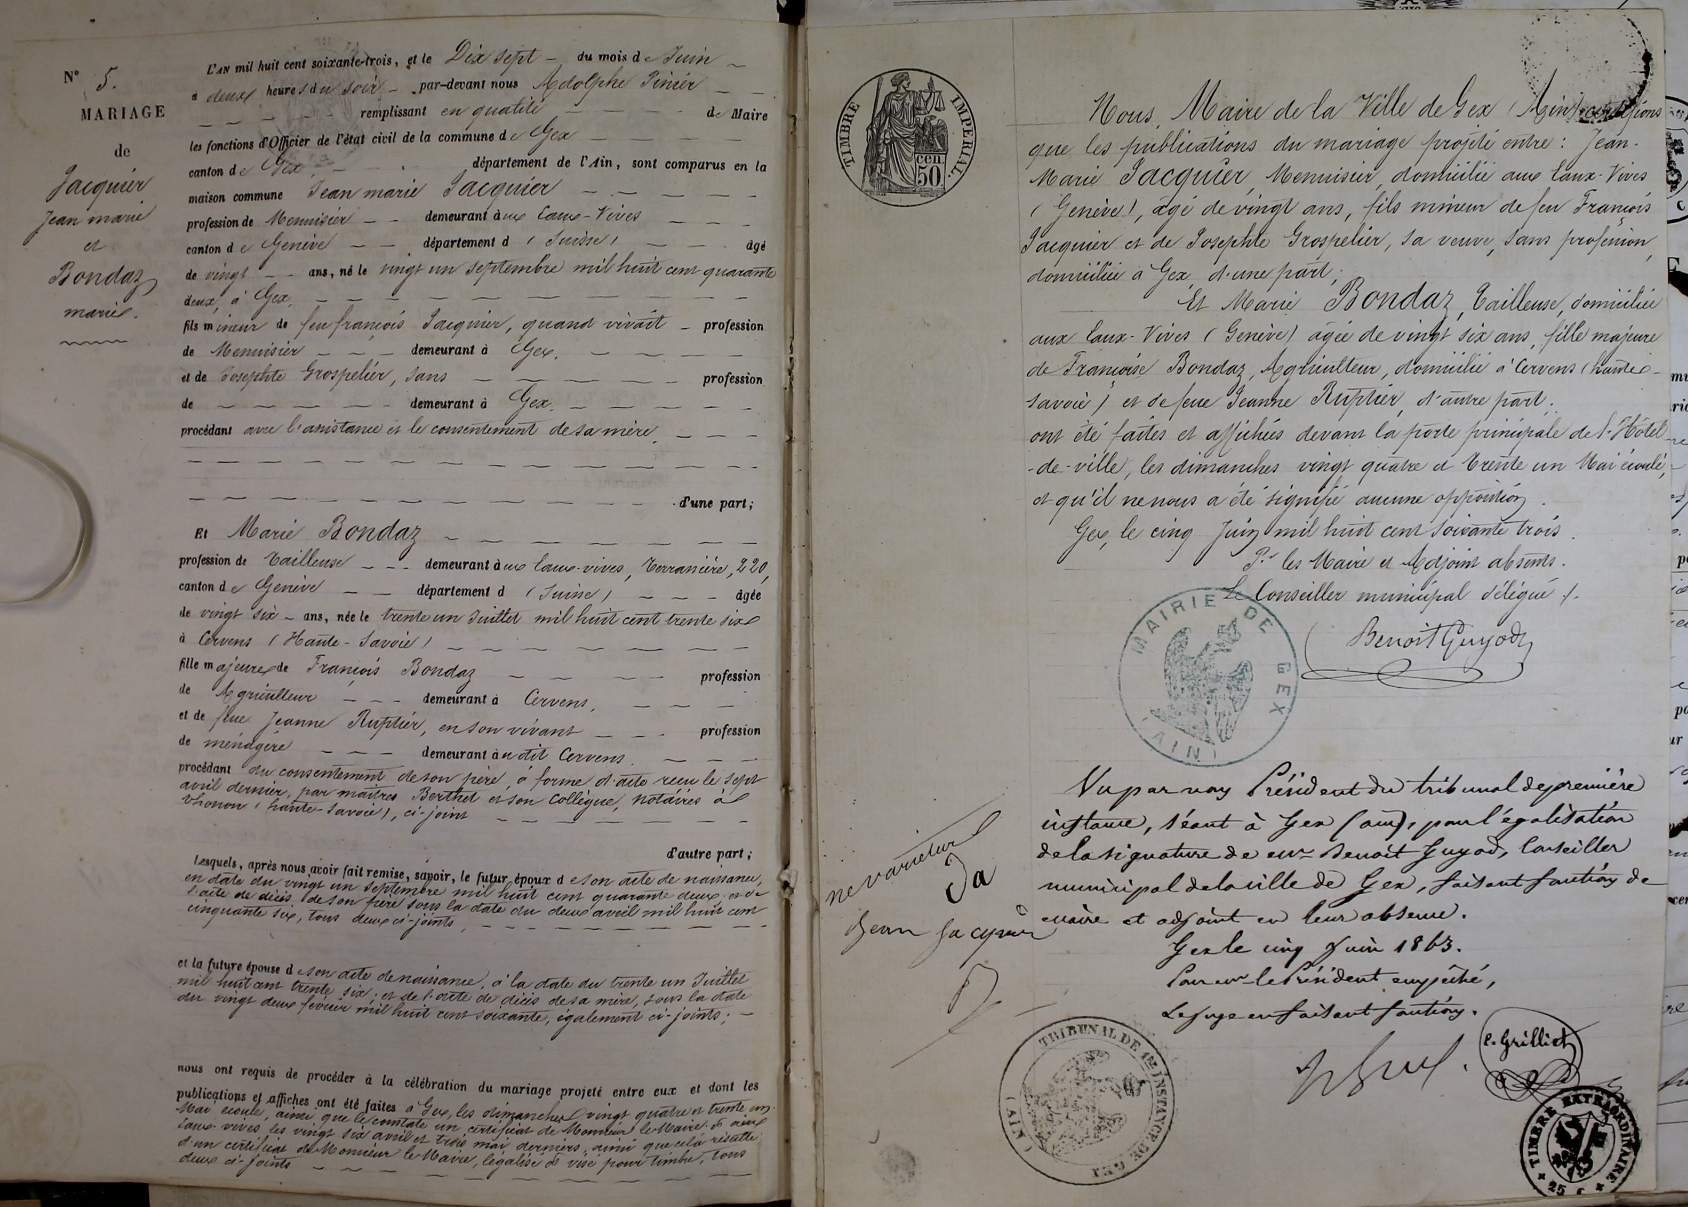 N° 5.
MARIAGE
de
Jacquier
Jean marie
et
Bondaz
marie.
L'AN mil huit cent soixante-trois, et le Dix sept du mois de Juin
à deux heures du soir par-devant nous Adolphe Pinier
remplissant en qualité de Maire
les fonctions d'Officier de l'état civil de la commune de Gex
canton de Gex, département de l'Ain, sont comparus en la
maison commune Jean marie Jacquier
profession de Menuisier demeurant à ux Eaux-Vives
canton de Genève département d (Suisse) âgé
de vingt ans, né le vingt un septembre mil huit cent quarante
deux, à Gex,
fils mineur de feu françois Jacquier, quand vivait profession
de Menuisier demeurant à Gex,
et de Josephte Grospelier, sans profession
de demeurant à Gex.
procédant avec l'assistance et le consentement de sa mère,
d'une part;
Et Marie Bondaz
profession de Tailleuse demeurant à ux eaux-vives, Terranière, 220,
canton de Genève département d (Suisse) âgée
de vingt six ans, née le trente un Juillet mil huit cent trente six
à Cervens (Haute-Savoie)
fille majeure de François Bondaz profession
de Agriculteur demeurant à Cervens,
et de feue Jeanne Ruptier, en son vivant profession
de ménagère demeurant à u dit Cervens.
procédant du consentement de son père, à forme d'acte reçu le sept
avril dernier, par maîtres Berthet et son collègue, notaires à
Thonon (haute-Savoie), ci-joint
d'autre part;
Lesquels, après nous avoir fait remise, savoir, le futur époux de son acte de naissance,
en date du vingt un septembre mil huit cent quarante deux, et de
l'acte de décès de son père sous la date du deux avril mil huit cent
cinquante six, tous deux ci-joints,
et la future épouse de son acte de naissance, à la date du trente un Juillet
mil huit cent trente six; et de l'acte de décès de sa mère, sous la date
du vingt deux février mil huit cent soixante, également ci-joints;
nous ont requis de procéder à la célébration du mariage projeté entre eux et dont les
publications et affiches ont été faites à Gex, les dimanches vingt quatre et trente un
Mai écoulé, ainsi que le constate un certificat de Monsieur le Maire; et aux
Eaux-vives les vingt six avril et trois mai derniers, ainsi que cela résulte
d'un certificat de Monsieur le Maire, légalisé et visé pour timbre, tous
deux ci-joints
TIMBRE IMPERIAL.
50 cen.
Nous, Maire de la Ville de Gex (Ain) certifions
que les publications du mariage projeté entre: Jean-
Marie Jacquier, Menuisier, domicilié aux Eaux-Vives
(Genève), âgé de vingt ans, fils mineur de feu François
Jacquier et de Josephte Grospelier, sa veuve, sans profession,
domiciliée à Gex, d'une part;
Et Marie Bondaz, Tailleuse, domiciliée
aux Eaux-Vives (Genève) âgée de vingt six ans, fille majeure
de François Bondaz, Agriculteur, domicilié à Cervens (haute-
Savoie) et de feue Jeanne Ruptier, d'autre part;
ont été faites et affichées devant la porte principale de l'Hôtel
-de-ville, les dimanches vingt quatre et trente un Mai écoulé,
et qu'il ne nous a été signifié aucune opposition.
Gex, le cinq Juin mil huit cent soixante trois.
Pr les Maire et Adjoint absents.
Le Conseiller municipal délégué.
Benoit Guyod
MAIRIE DE GEX
(AIN)
Vu par nous Président du tribunal de première
instance, séant à Gex (ain), pour légalisation
de la signature de mr Benoit Guyod, Conseiller
municipal de la ville de Gex, faisant fonctions de
maire et adjoint en leur absence.
Gex le cinq Juin 1863.
Pour mr le Président empêché,
Le juge en faisant fonctions.
ne varietur
Jean Jacquier
e. Grilliet
TRIBUNAL DE 1ère INSTANCE DE GEX
(AIN)
TIMBRE EXTRAORDINAIRE
25 c